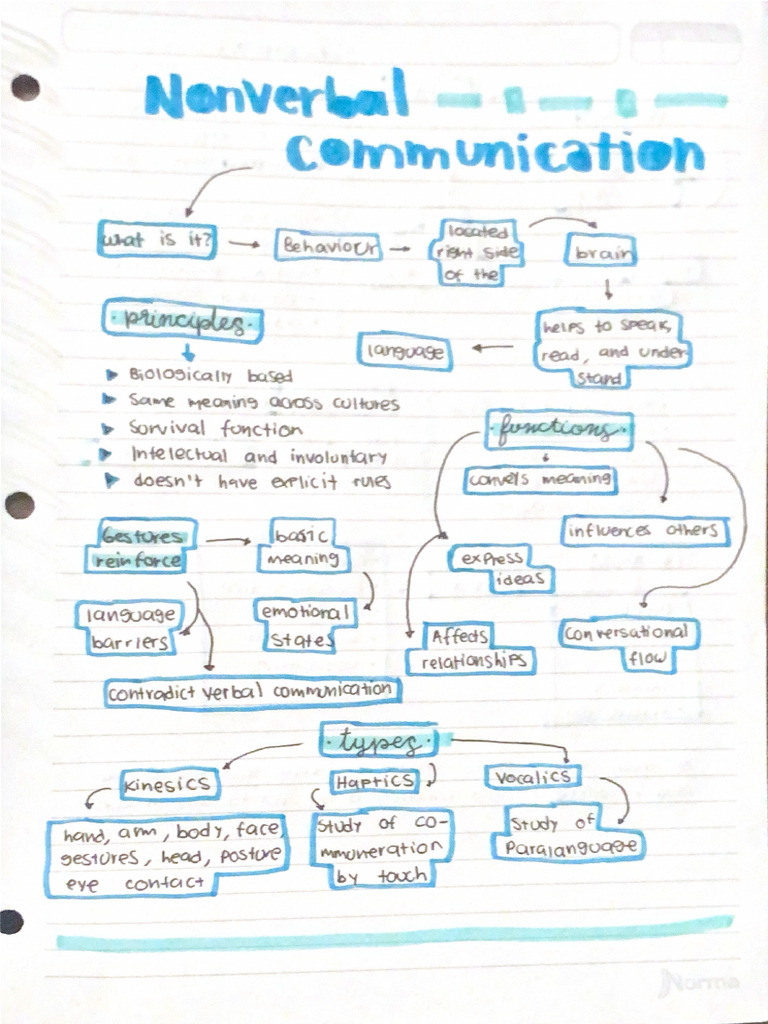 Nonverbal
communication
what is it?
Behaviour
located
right side
of the
brain
helps to speak,
read, and under-
stand
language
principles
Biologically based
Same meaning across cultures
Survival function
Intelectual and involuntary
doesn't have explicit rules
functions
convels meaning
influences others
express
ideas
Affects
relationships
conversational
flow
Gestures
reinforce
basic
meaning
language
barriers
emotional
states
contradict verbal communication
types
Kinesics
hand, arm, body, face,
gestures, head, posture
eye contact
Haptics
Study of co-
mmuneration
by touch
vocalics
Study of
Paralanguage
Norma